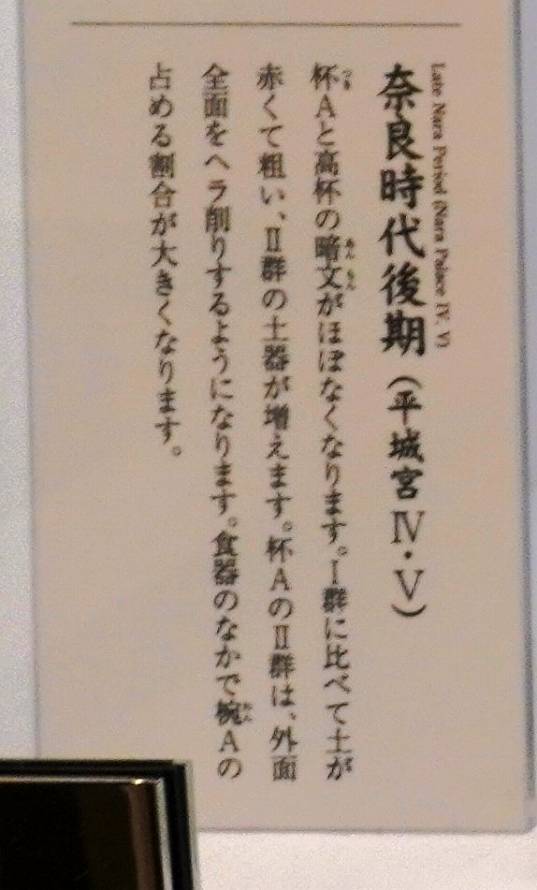 Late Nara Period (Nara Palace IV, V)
奈良時代後期（平城宮Ⅳ・Ⅴ）
杯Aと高杯の暗文がほぼなくなります。Ⅰ群に比べて土が
赤くて粗い、Ⅱ群の土器が増えます。杯AのⅡ群は、外面
全面をヘラ削りするようになります。食器のなかで椀Aの
占める割合が大きくなります。